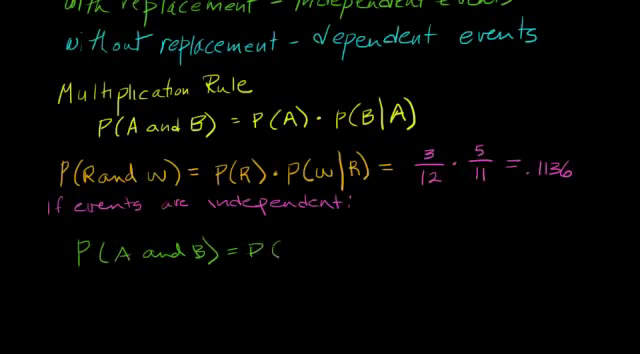 with replacement - independent events
without replacement - dependent events
Multiplication Rule
P(A and B) = P(A) · P(B|A)
P(R and W) = P(R) · P(W|R) = 3/12 · 5/11 = .1136
If events are independent:
P(A and B) = P(